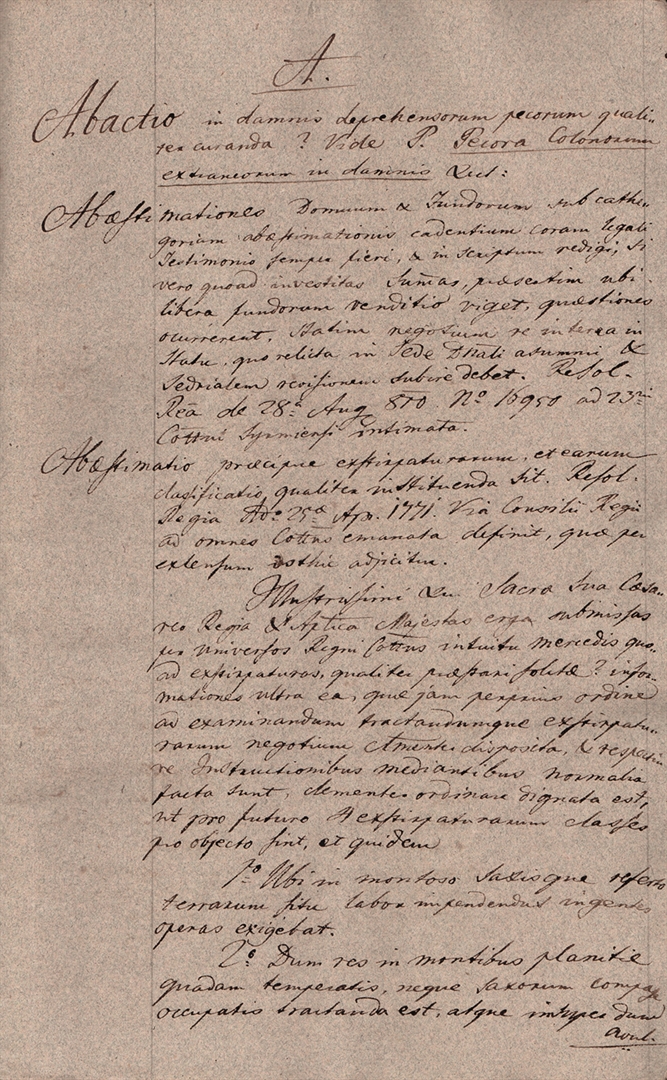 A.
Abactio in damnis deprehensorum pecorum quali-
ter curanda? Vide P. Pecora Colonorum
extraneorum in damnis &ct:
Abæstimationes Domuum & Fundorum sub cathe-
goriam abæstimationis cadentium coram legali
Testimonio semper fieri, & in scriptum redigi; si
vero quoad investitas Sum̄as, præsertim ubi
libera fundorum venditio viget, quæstiones
ocurrerent, statim negotium re interea in
statu quo relicta in Sede Dn̄ali assumi &
Sedrialem revisionem subire debet. Resol.
Reā de 28ª Aug 810 Nº 15950 ad
Cottui Syrmiensi intimata.
Abæstimatio præcipue exstirpaturarum, et earum
clasificatio, qualiter instituenda sit. Resol.
Regia Ddº 25æ Apr. 1771. Via Consilii Regii
ad omnes Cottus emanata definit, quæ per
extensum isthic adjicitur.
Illustrissimi &c. Sacra sua Cæsa-
reo Regia & Aptica Majestas erga submissas
per Universos Regni Cottus intuitu mercedis quo-
ad exstirpaturas, qualiter præstari solitæ? infor-
mationes ultra ea, quæ jam perprius ordine
ad examinandum tractandumque exstirpatu-
rarum negotium Clementer disposita, & respective
Instructionibus mediantibus normalia
facta sunt, clementer ordinare dignata est,
ut pro futuro 4 exstirpaturarum classes
pro objecto sint, et quidem
1º Ubi in montoso saxisque referto
terrarum situ labor impendendus ingentes
operas exigebat.
2º Dum res in montibus planitie
quadam temperatis, neque saxorum compage
occupatis tractanda est, atque dum
avul-